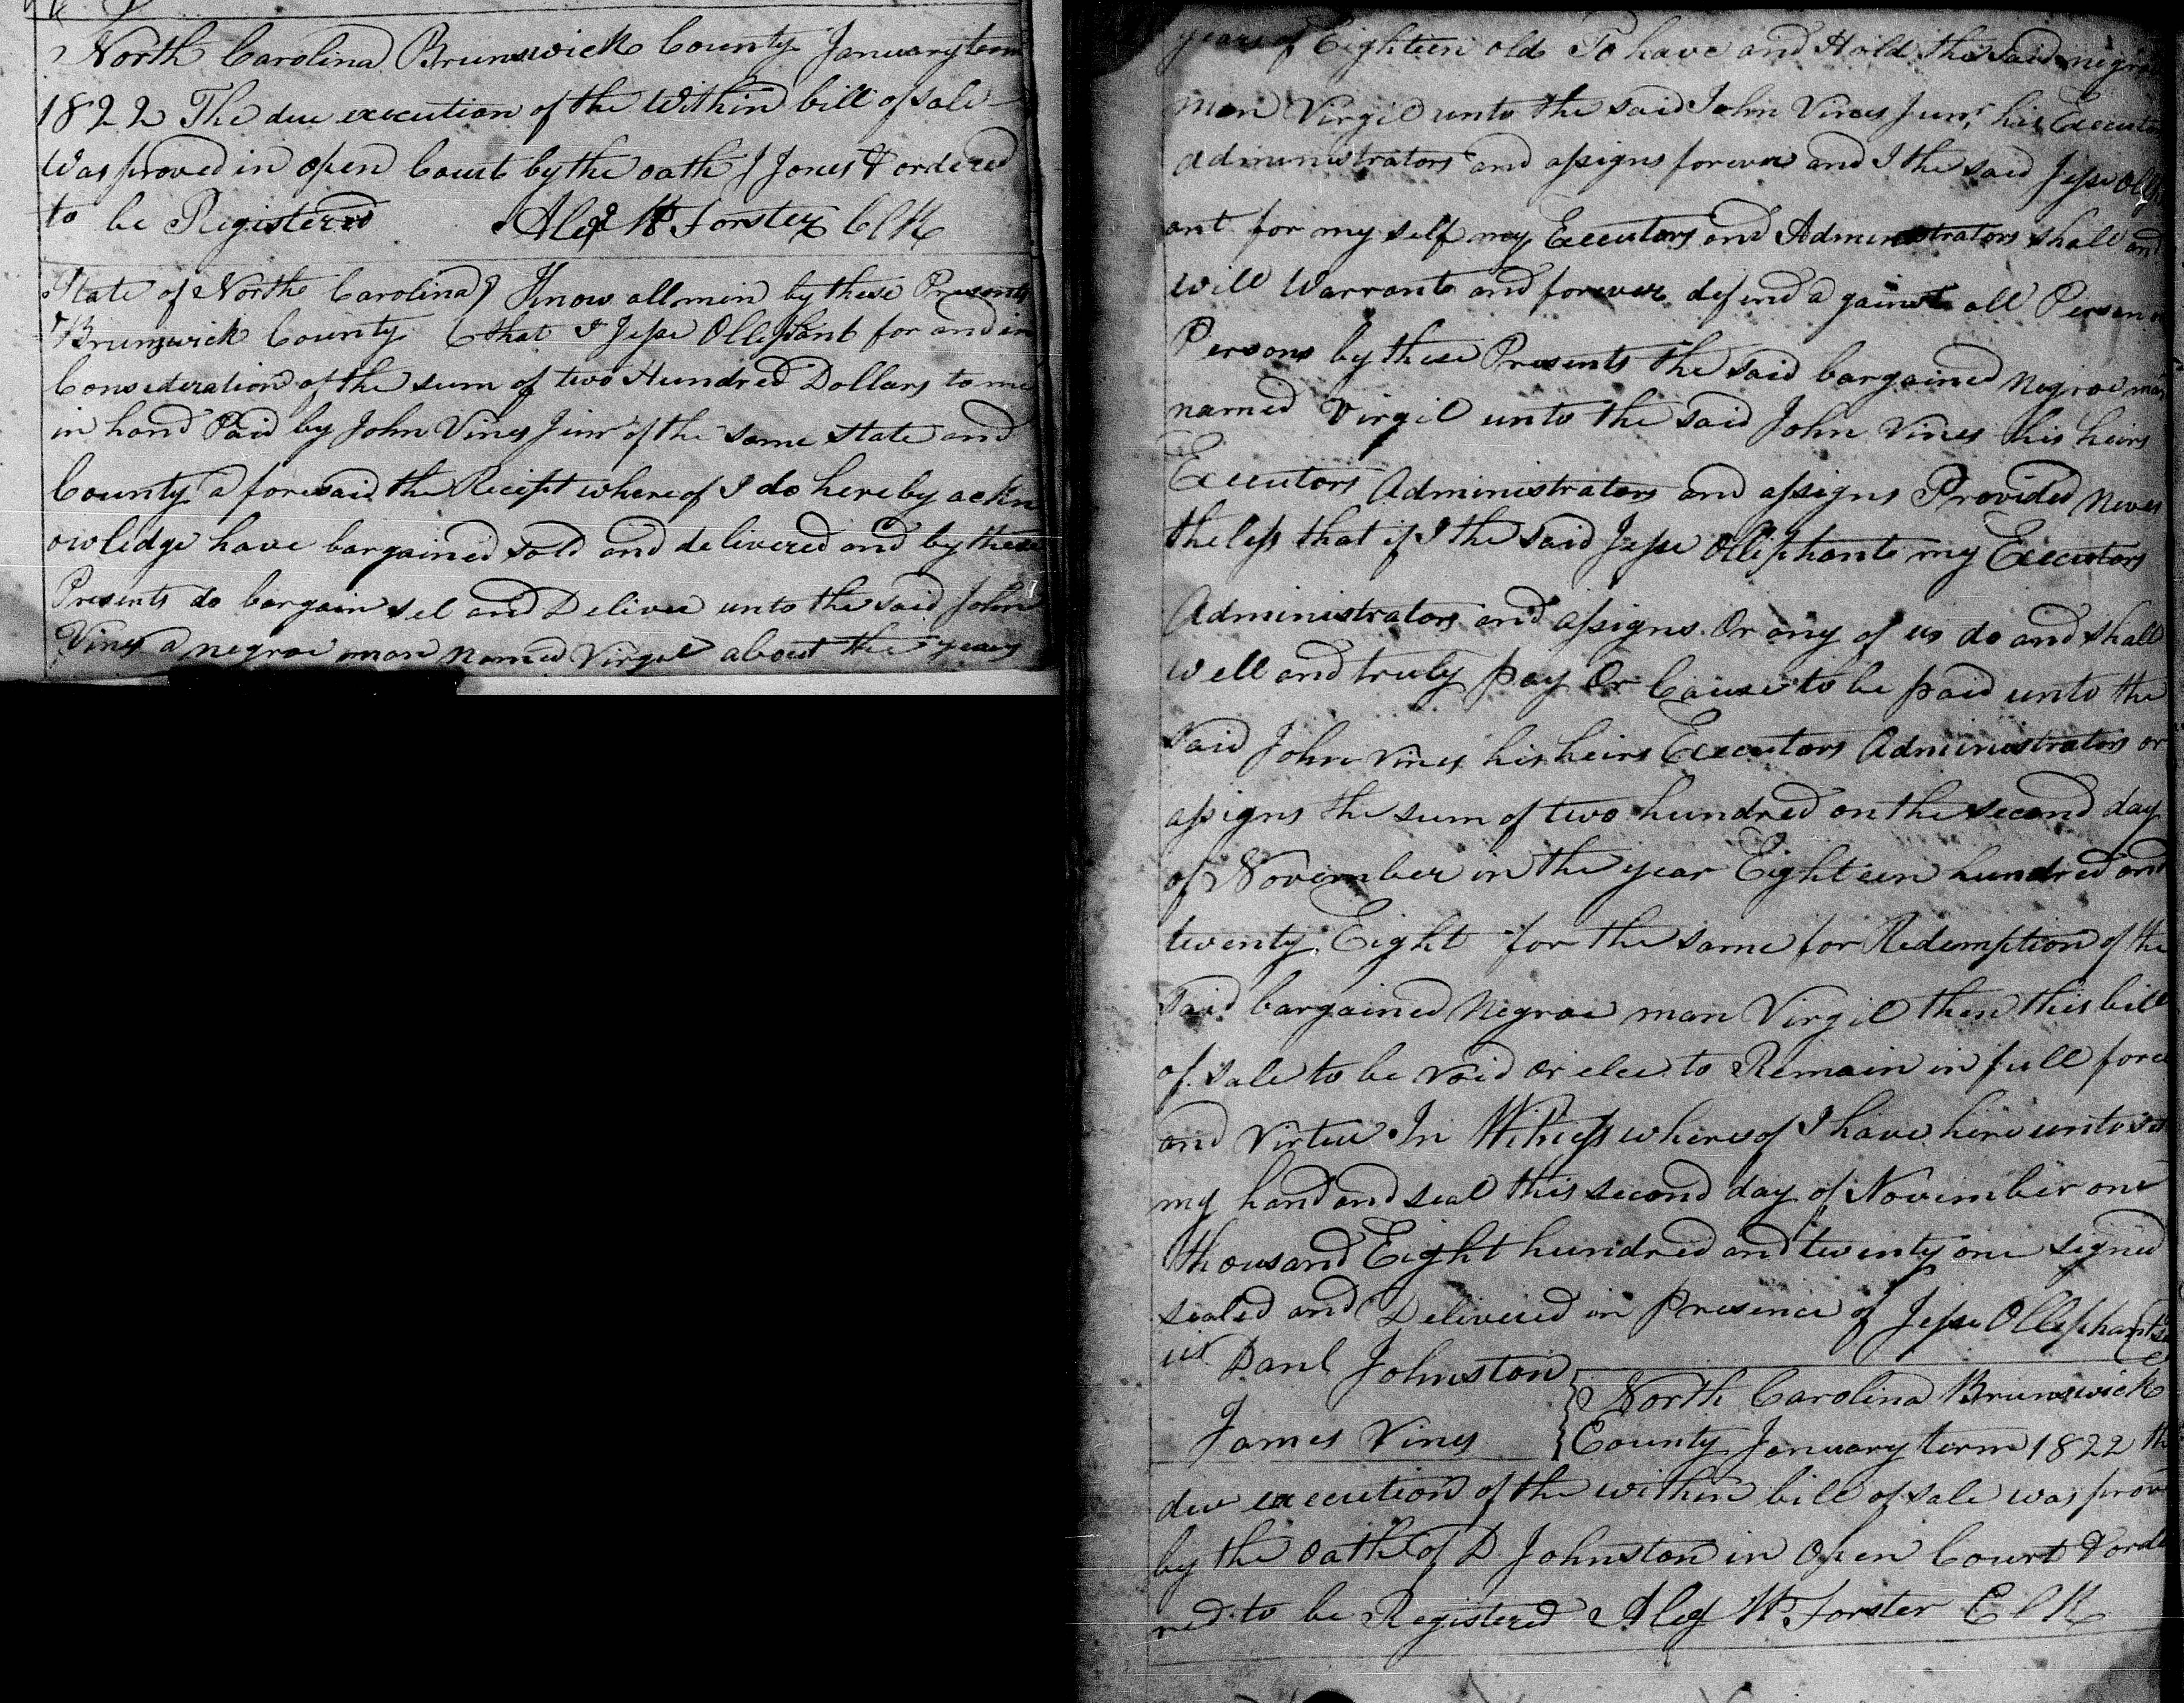 North Carolina Brunswick County January term
1822 The due execution of the Within bill of sale
Was proved in open Court by the oath J Jones & ordered
to be Registered Alex W Forster ClK
State of North Carolina } Know all men by these Presents
Brunswick County { that I Jesse Ollephant for and in
Consideration of the sum of two Hundred Dollars to me
in hand Paid by John Vines Junr of the same state and
County a foresaid the Receipt where of I do here by ackn
owledge have bargained sold and delivered and by these
Presents do bargain sel and Deliver unto the said John
Vines a negroe man named Virgel about the years
years of Eighteen old To have and Hold the said negroe
man Virgil unto the said John Vines Junr his Executors
administrators and assigns forever and I the said Jesse Olleph
ant for my self my Executors and Administrators shall and
will Warrant and forever defend a gainst all Person or
Persons by these Presents the said bargained Negroe man
named Virgil unto the said John Vines his heirs
Executors Administrators and assigns Provided Never
theless that if I the said Jesse Ollephant my Executors
Administrators and assigns Or any of us do and shall
well and truly pay Or Cause to be paid unto the
said John Vines his heirs Executors Administrators or
assigns the sum of two hundred on the second day
of November in the year Eighteen hundred and
twenty Eight for the same for Redemption of the
said bargained Negroe man Virgil then this bill
of sale to be void or elce to Remain in full force
and virtue In Witness where of I have here unto set
my hand and seal this second day of November one
thousand Eight hundred and twenty one signed
sealed and Delivered in presence of Jesse Ollephant
us Danl Johnston
James Vines
North Carolina Brunswick
County January term 1822 the
due execution of the within bill of sale was prov
by the oath of D Johnston in open Court & orde
red to be Registered Alex W. Forster ClK